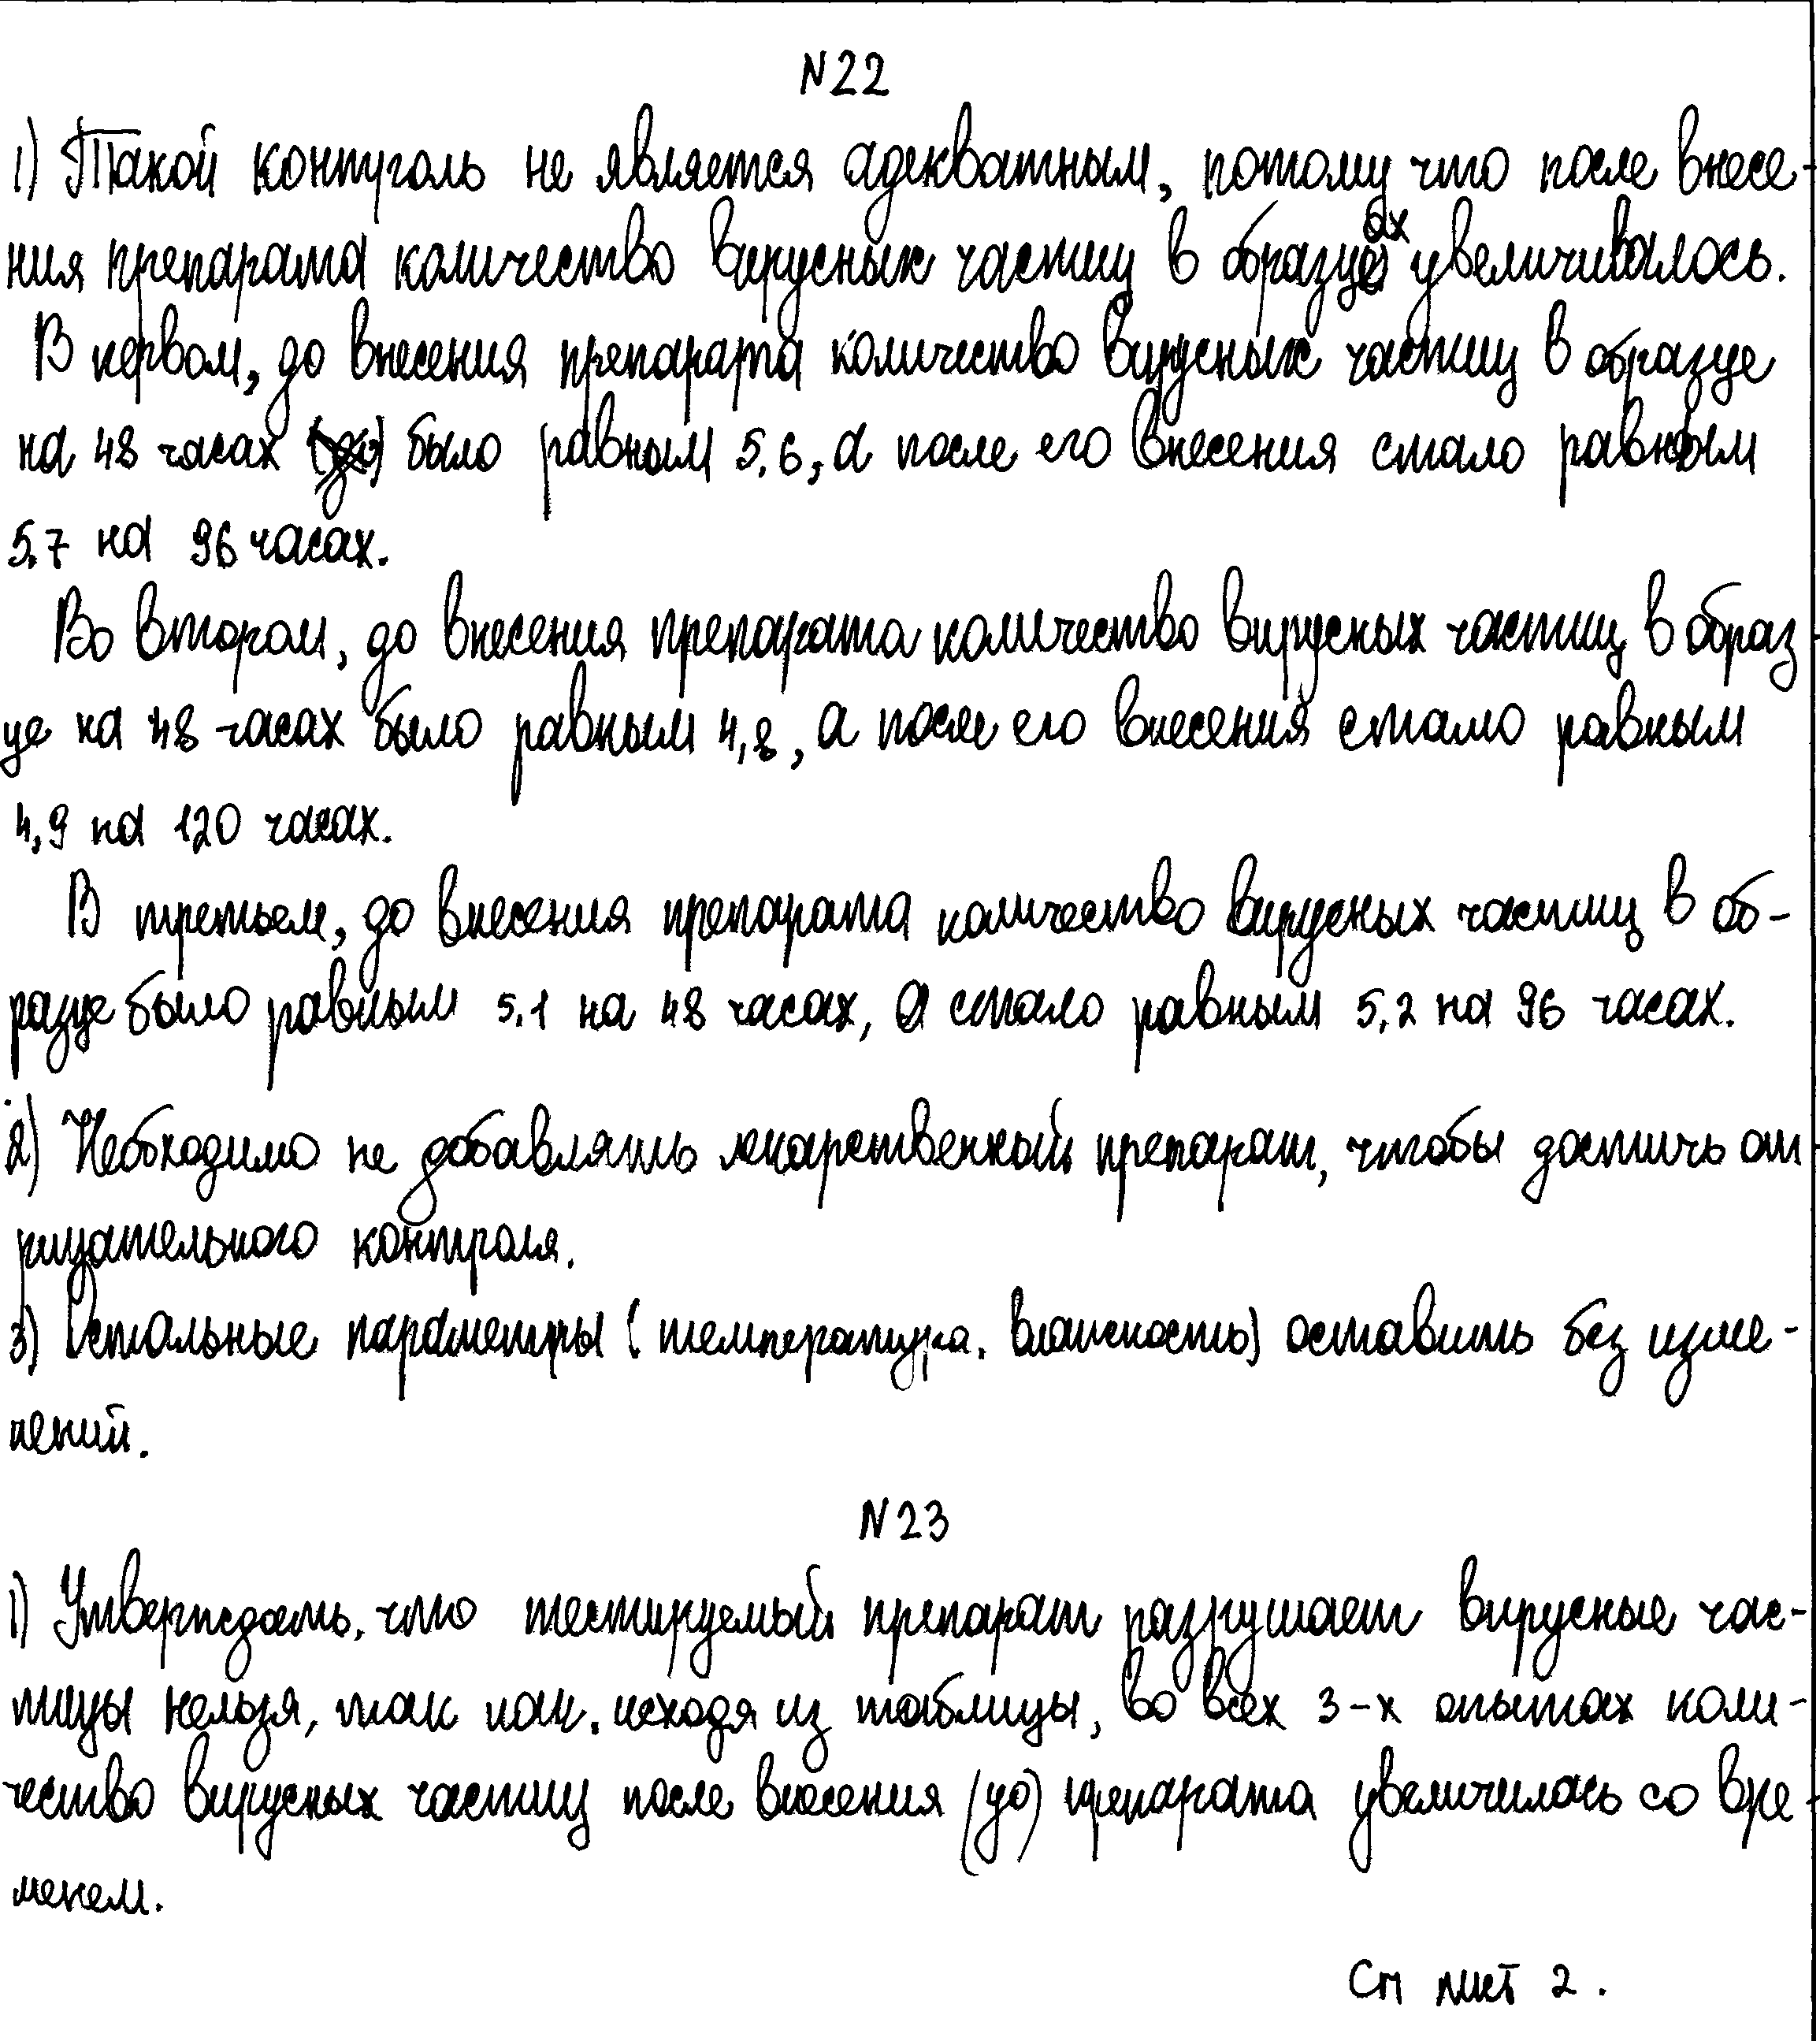 N22
1) Такой контроль не является адекватным, потому что после внесе-
ния препарата количество вирусных частиц в образцах увеличивалось.
В первом, до внесения препарата количество вирусных частиц в образце
на 48 часах было равным 5.6, а после его внесения стало равным
5.7 на 96 часах.
Во втором, до внесения препарата количество вирусных частиц в образ
це на 48 часах было равным 4,8, а после его внесения стало равным
4,9 на 120 часах.
В третьем, до внесения препарата количество вирусных частиц в об-
разце было равным 5.1 на 48 часах, а стало равным 5,2 на 96 часах.
2) Необходимо не добавлять лекарственный препарат, чтобы достичь от
рицательного контроля.
3) Остальные параметры (температура, влажность) оставить без изме-
нений.
N23
1) Утверждать, что тестируемый препарат разрушает вирусные час-
тицы нельзя, так как, исходя из таблицы, во всех 3-х опытах коли-
чество вирусных частиц после внесения (до) препарата увеличилась со вре-
менем.
См лист 2.